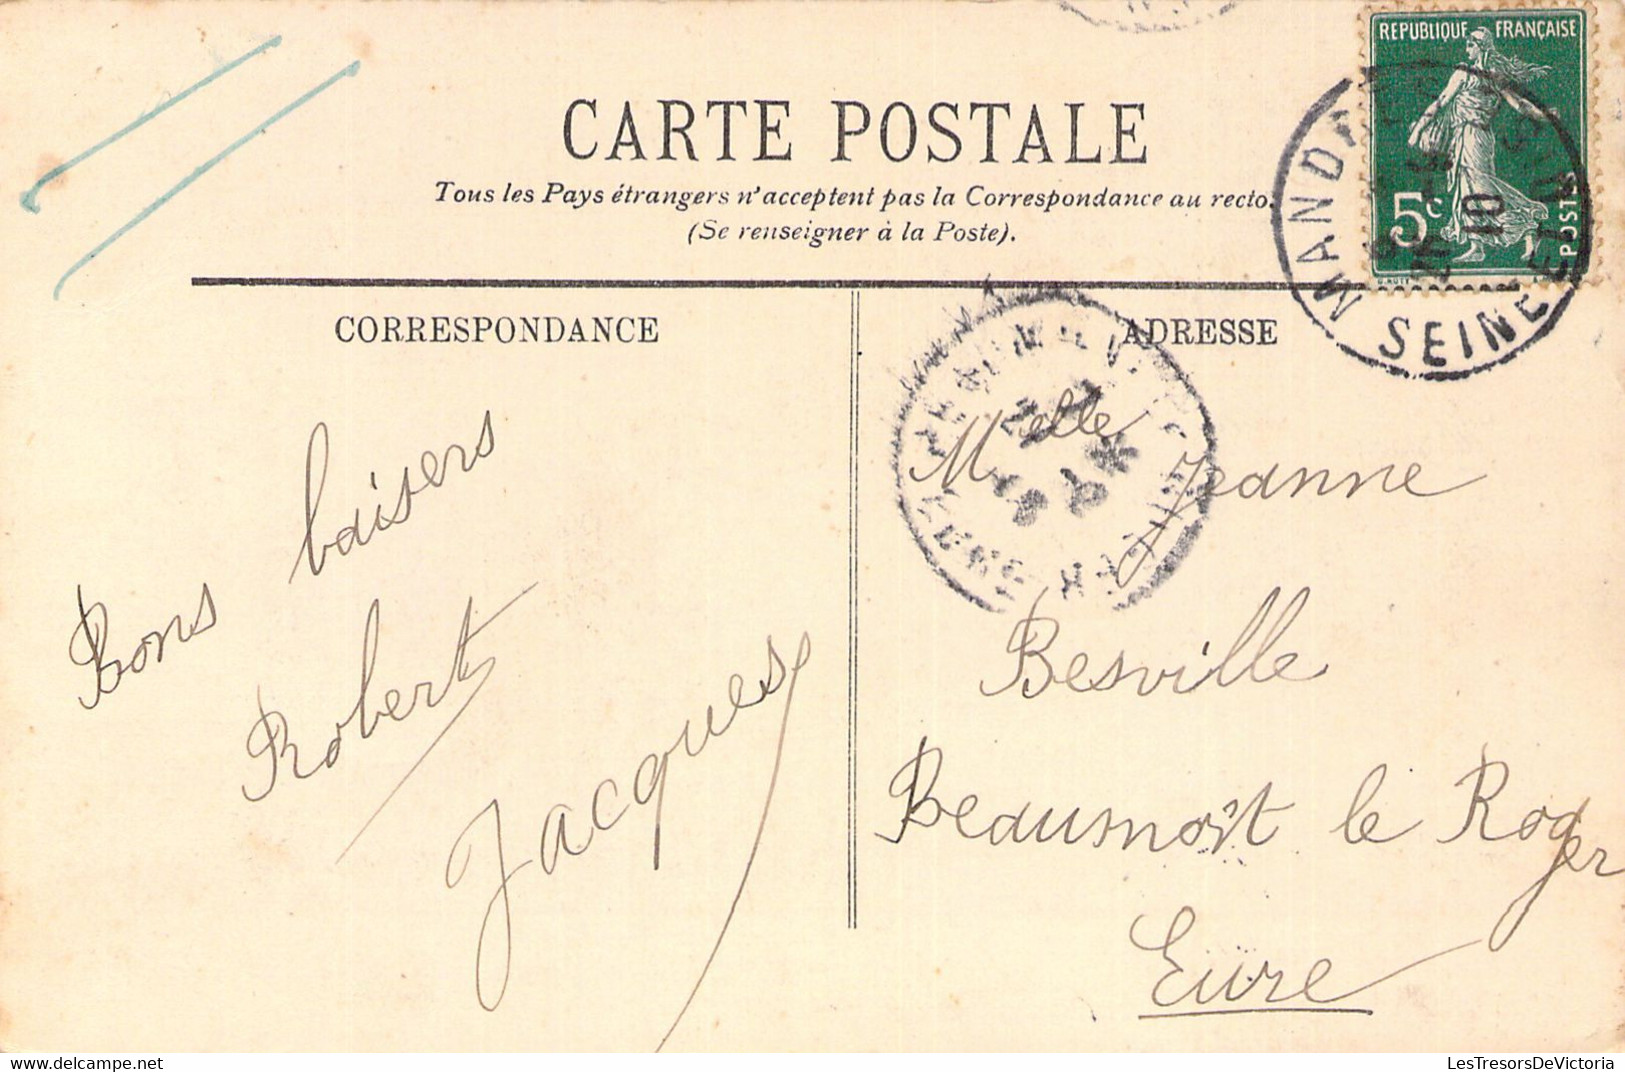 REPUBLIQUE FRANÇAISE
5c
POSTES
CARTE POSTALE
Tous les Pays étrangers n'acceptent pas la Correspondance au recto.
(Se renseigner à la Poste).
SEINE ET OISE
10
CORRESPONDANCE
ADRESSE
Bons baisers
Robert
Jacques
Melle Jeanne
Besville
Beaumont le Roger
Eure
LesTresorsDeVictoria